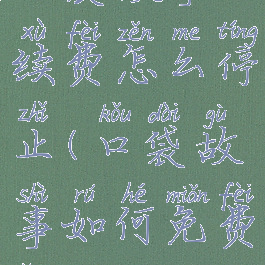 xù fèi zěn me tíng
续费怎么停
zhǐ kǒu dài gù
止(口袋故
shì rú hé miǎn fèi
事如何免费